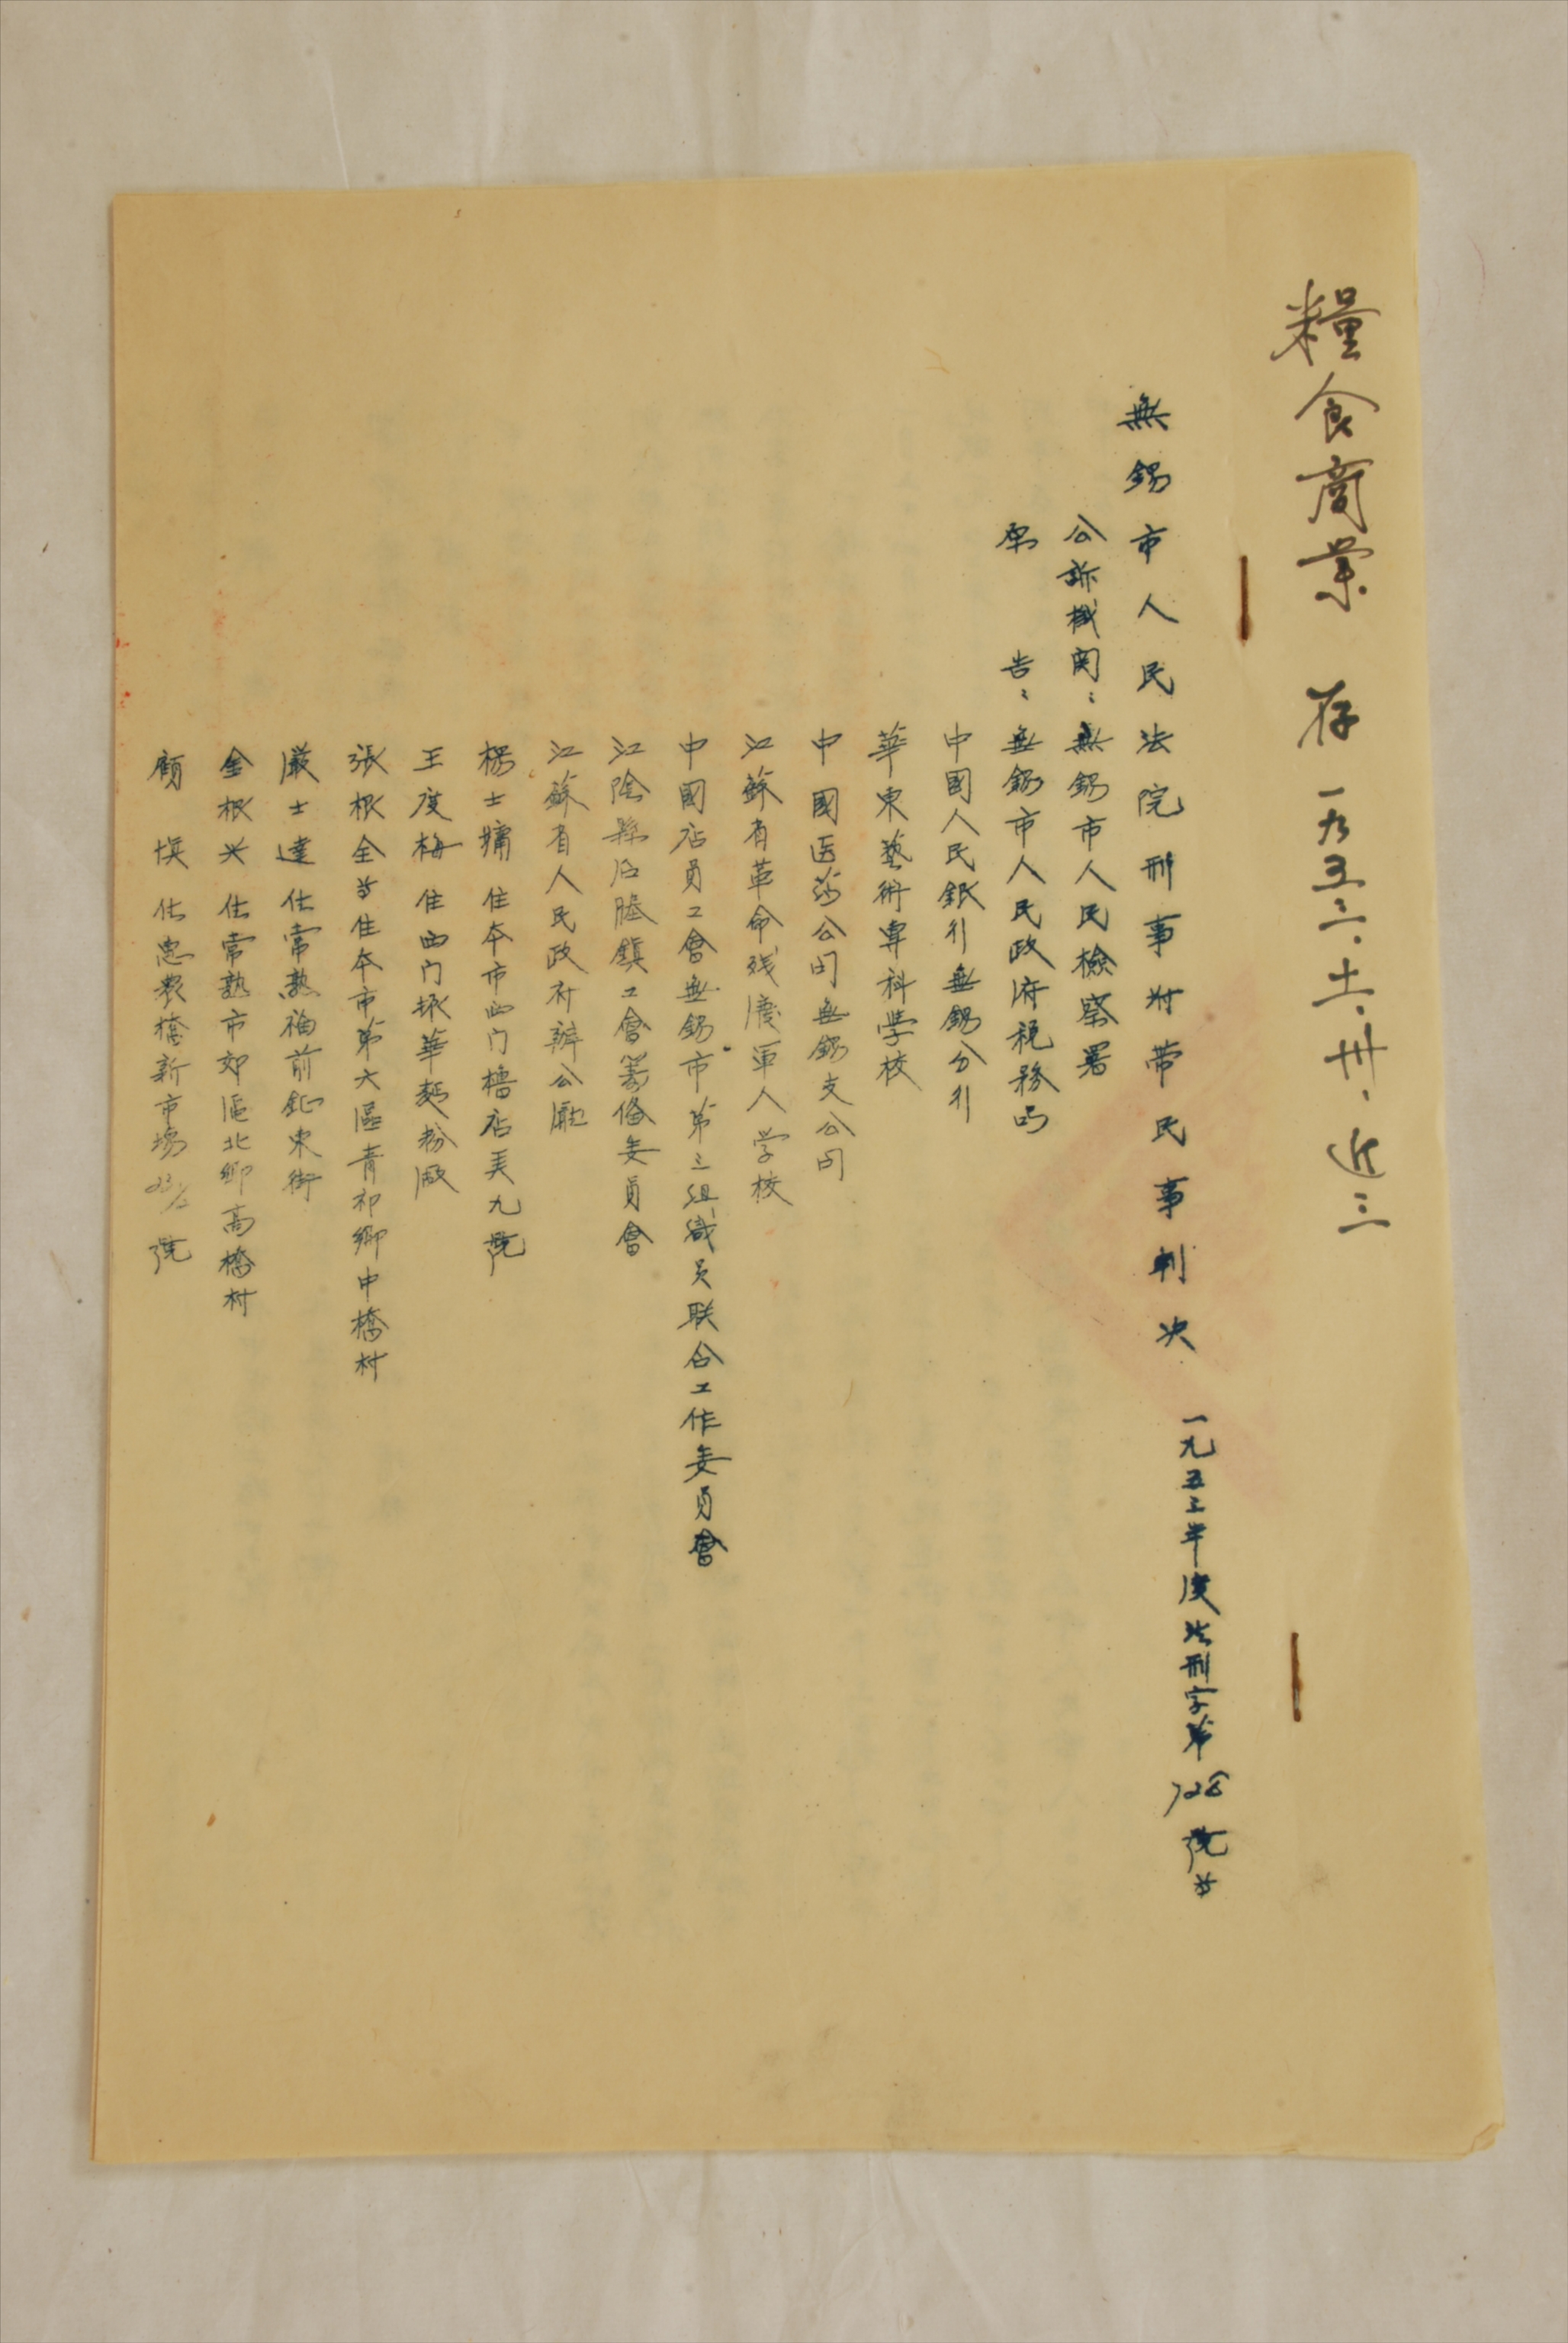 糧食商業 存 一九五三.十一.卅. 近三
無錫市人民法院刑事附带民事判决 一九五三年度法刑字第728號
公訴機関:無錫市人民檢察署
原告:無錫市人民政府税務局
中國人民銀行無錫分行
華東藝術專科学校
中國医药公司無錫支公司
江蘇省革命残廢軍人学校
中國店員工會無錫市第三组織員联合工作委員會
江陰縣后塍鎮工會筹备委員會
江蘇省人民政府辦公廳
楊士 住本市西门 店美九號
王度梅 住西门振華麵粉廠
張根全 住本市第六區青祁鄉中橋村
嚴士達 住常熟 前 東街
金根兴 住常熟市郊區北鄉高橋村
顧 住惠 新市場 號